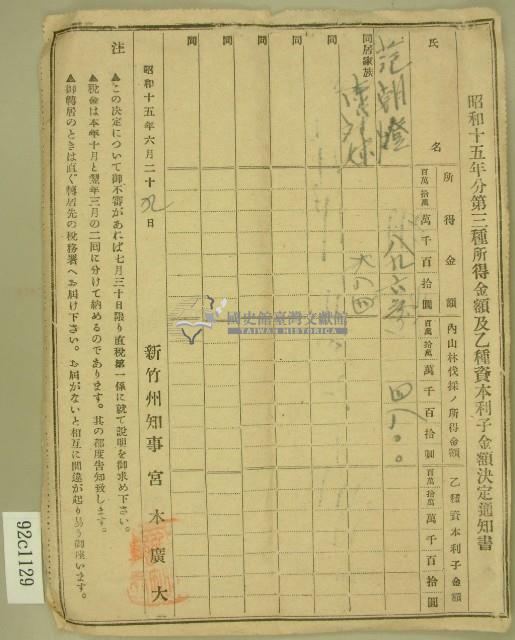 昭和十五年分第三種所得金額及乙種資本利子金額決定通知書
氏名
所得金額
內山林伐採ノ所得金額
乙種資本利子金額
百萬 拾萬 萬 千 百 拾 圓
百萬 拾萬 萬 千 百 拾 圓
百萬 拾萬 萬 千 百 拾 圓
范朝燈
同居家族
四八〇〇
六八四
同
同
同
同
同
昭和十五年六月二十九日
新竹州知事 宮木廣大
注
▲この決定について御不審があれば七月三十日限り直稅第一係に就て說明を御求め下さい。
▲稅金は本年十月と翌年三月の二回に分けて納めるのであります。其の都度告知致します。
▲御轉居のときは直ぐ轉居先の稅務署へお屆け下さい。お屆がないと相互に間違が起り易う御座います。
國史館臺灣文獻館
TAIWAN HISTORICA
92c1129